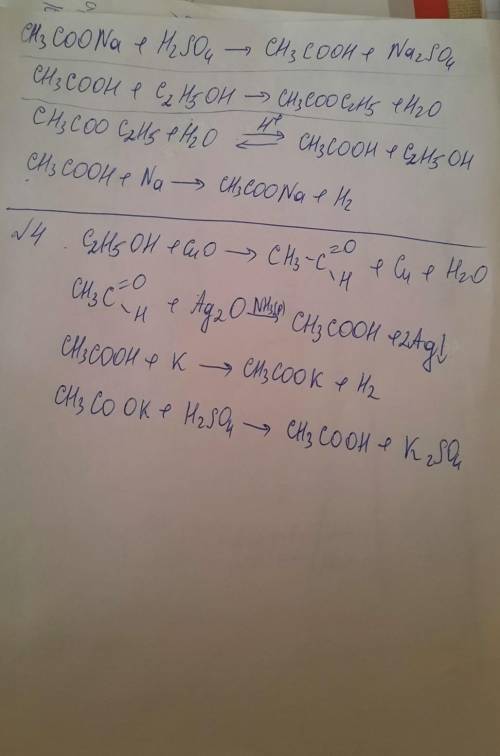 CH3COONa + H2SO4 → CH3COOH + Na2SO4
CH3COOH + C2H5OH → CH3COOC2H5 + H2O
CH3COOC2H5 + H2O ⇌ H+ CH3COOH + C2H5OH
CH3COOH + Na → CH3COONa + H2
√4 C2H5OH + CuO → CH3-C=O-H + Cu + H2O
CH3C=O-H + Ag2O NH3(р)→ CH3COOH + 2Ag↓
CH3COOH + K → CH3COOK + H2
CH3COOK + H2SO4 → CH3COOH + K2SO4